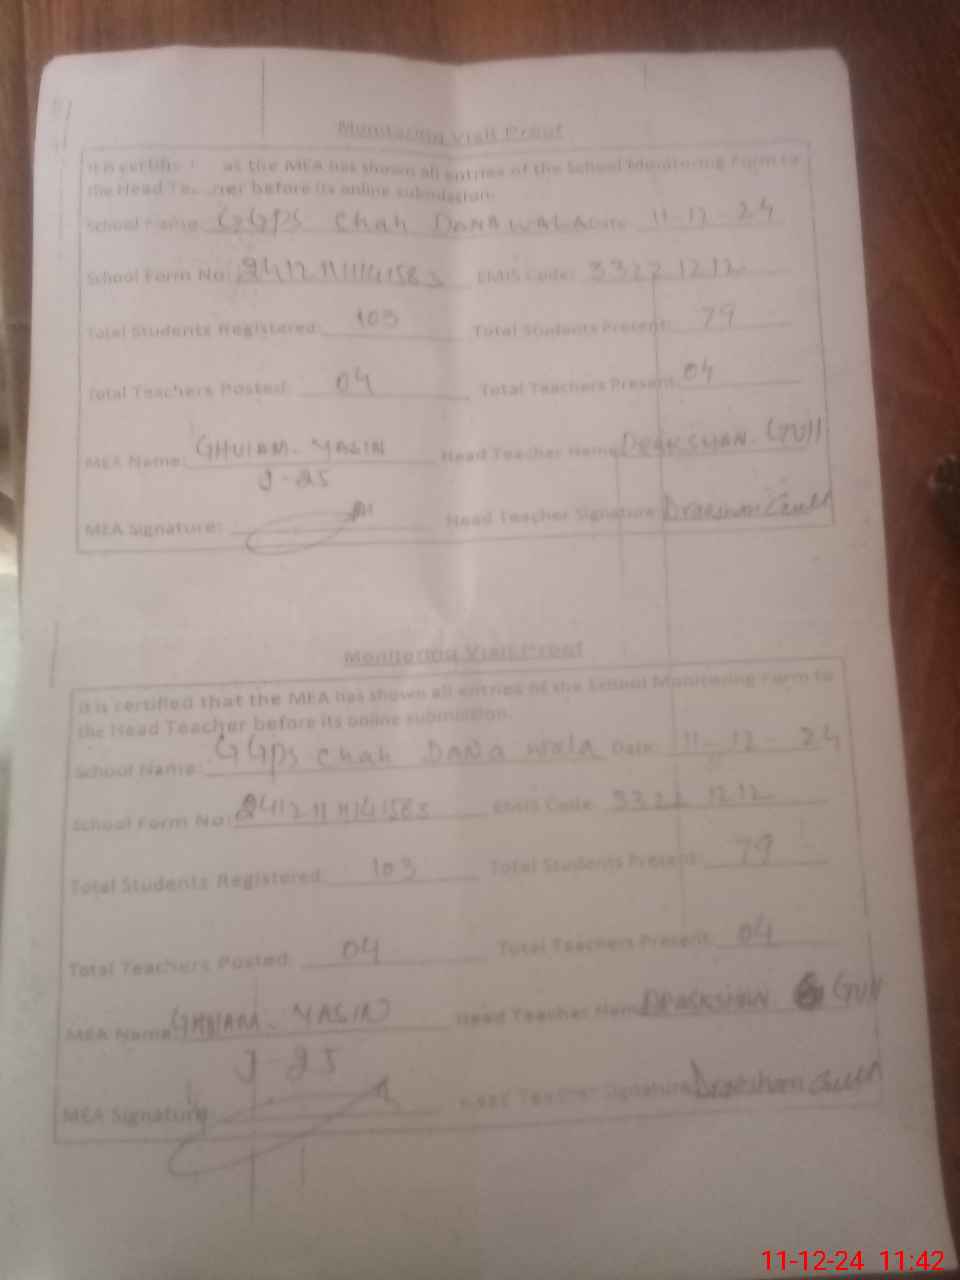 Monitoring Visit Proof
It is certifie as the MEA has shown all entries of the School Monitoring Form to
the Head Teacher before its online submission.
School Name: GGPS Chah DANA WALA Date: 11-12-24
School Form No: EMIS Code: 33221212
Total Students Registered: 103 Total Students Present: 79
Total Teachers Posted: 04 Total Teachers Present: 04
MEA Name: GHULAM. YASIN Head Teacher Name
J-25
MEA Signature: Head Teacher Signature:
Monitoring Visit Proof
It is certified that the MEA has shown all entries of the School Monitoring Form to
the Head Teacher before its online submission.
School Name: GGPS Chah DANA Wala Date: 11-12-24
School Form No: EMIS Code: 33221212
Total Students Registered: 103 Total Students Present: 79
Total Teachers Posted: 04 Total Teachers Present: 04
MEA Name: GHULAM. YASIN Head Teacher Name
J-25
MEA Signature: Head Teacher Signature
11-12-24 11:42